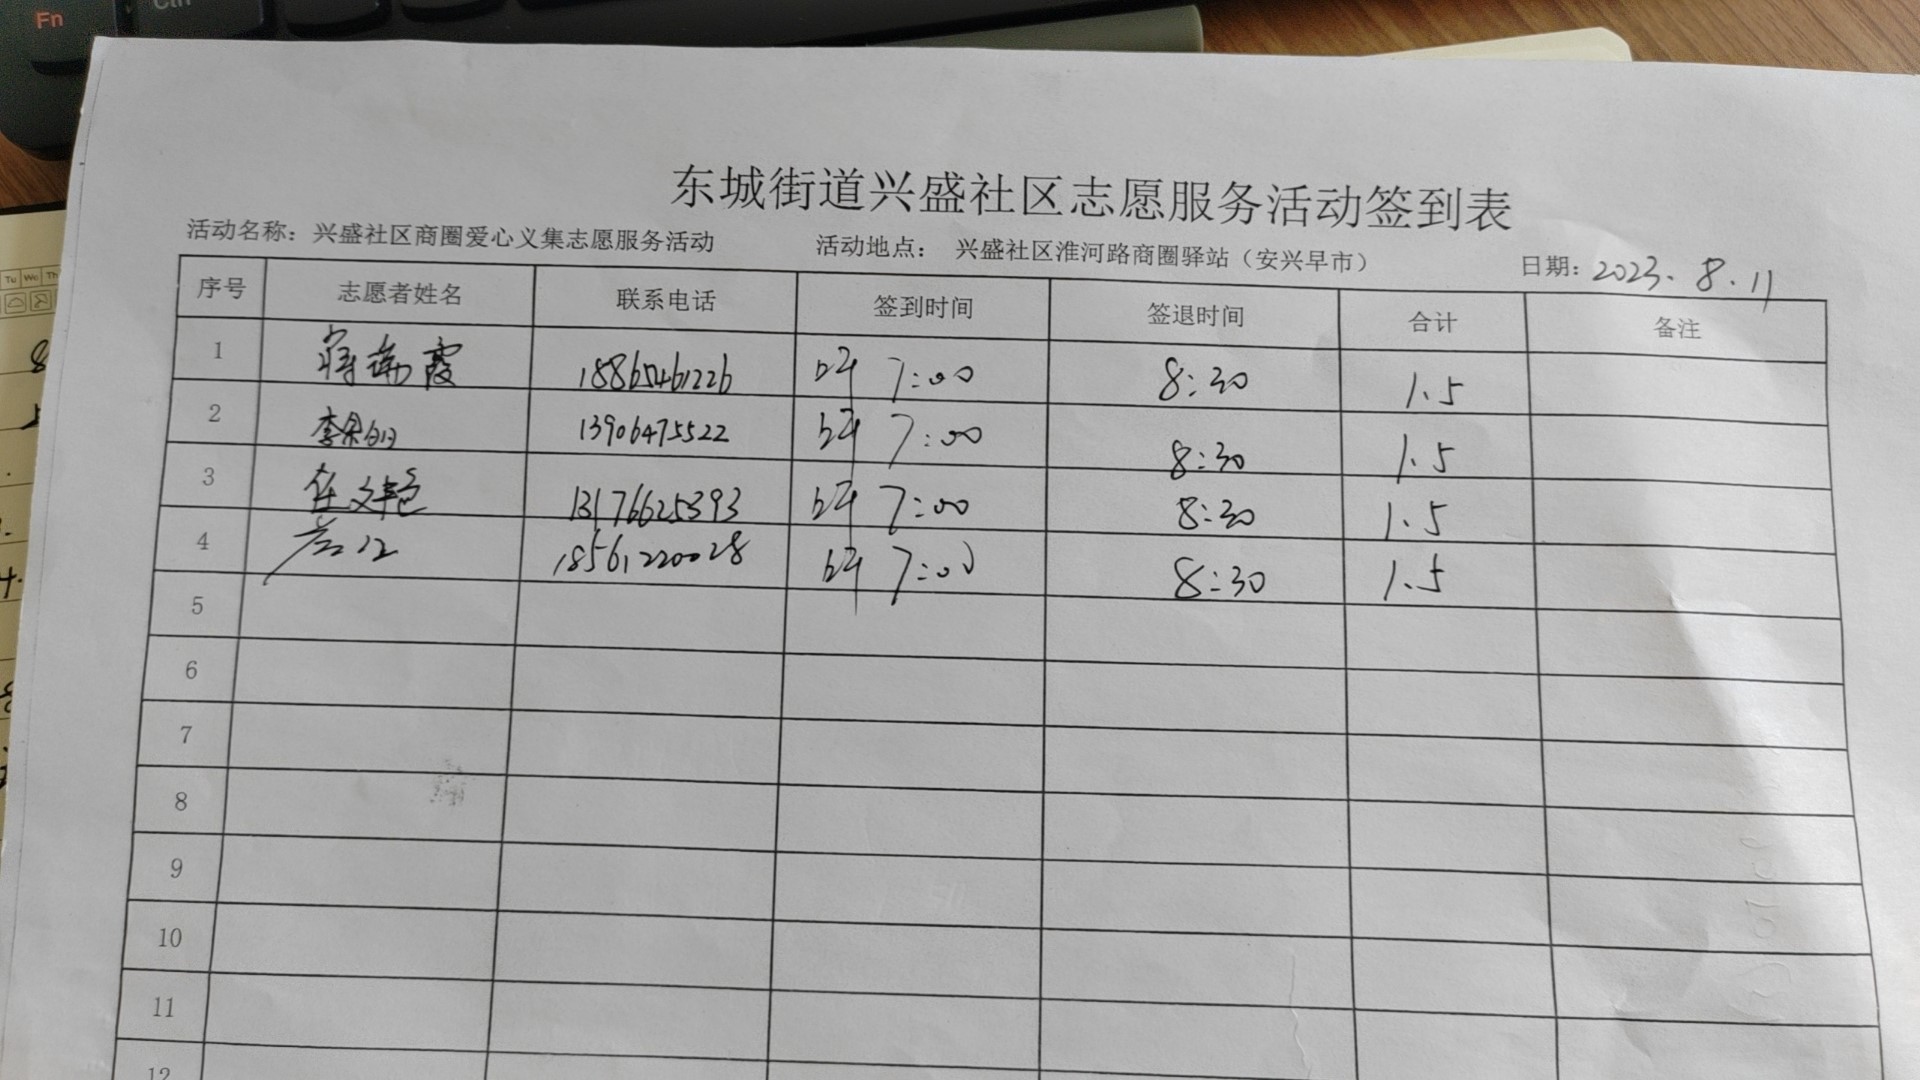 Fn
Ctrl
东城街道兴盛社区志愿服务活动签到表
活动名称：兴盛社区商圈爱心义集志愿服务活动 活动地点： 兴盛社区淮河路商圈驿站（安兴早市） 日期：2023.8.11
Tu We Th
序号 志愿者姓名 联系电话 签到时间 签退时间 合计 备注
1 18865461226 7:00 8:30 1.5
2 13906475522 7:00 8:30 1.5
3 13176625393 7:00 8:30 1.5
4 18561220028 7:00 8:30 1.5
5
6
7
8
9
10
11
12